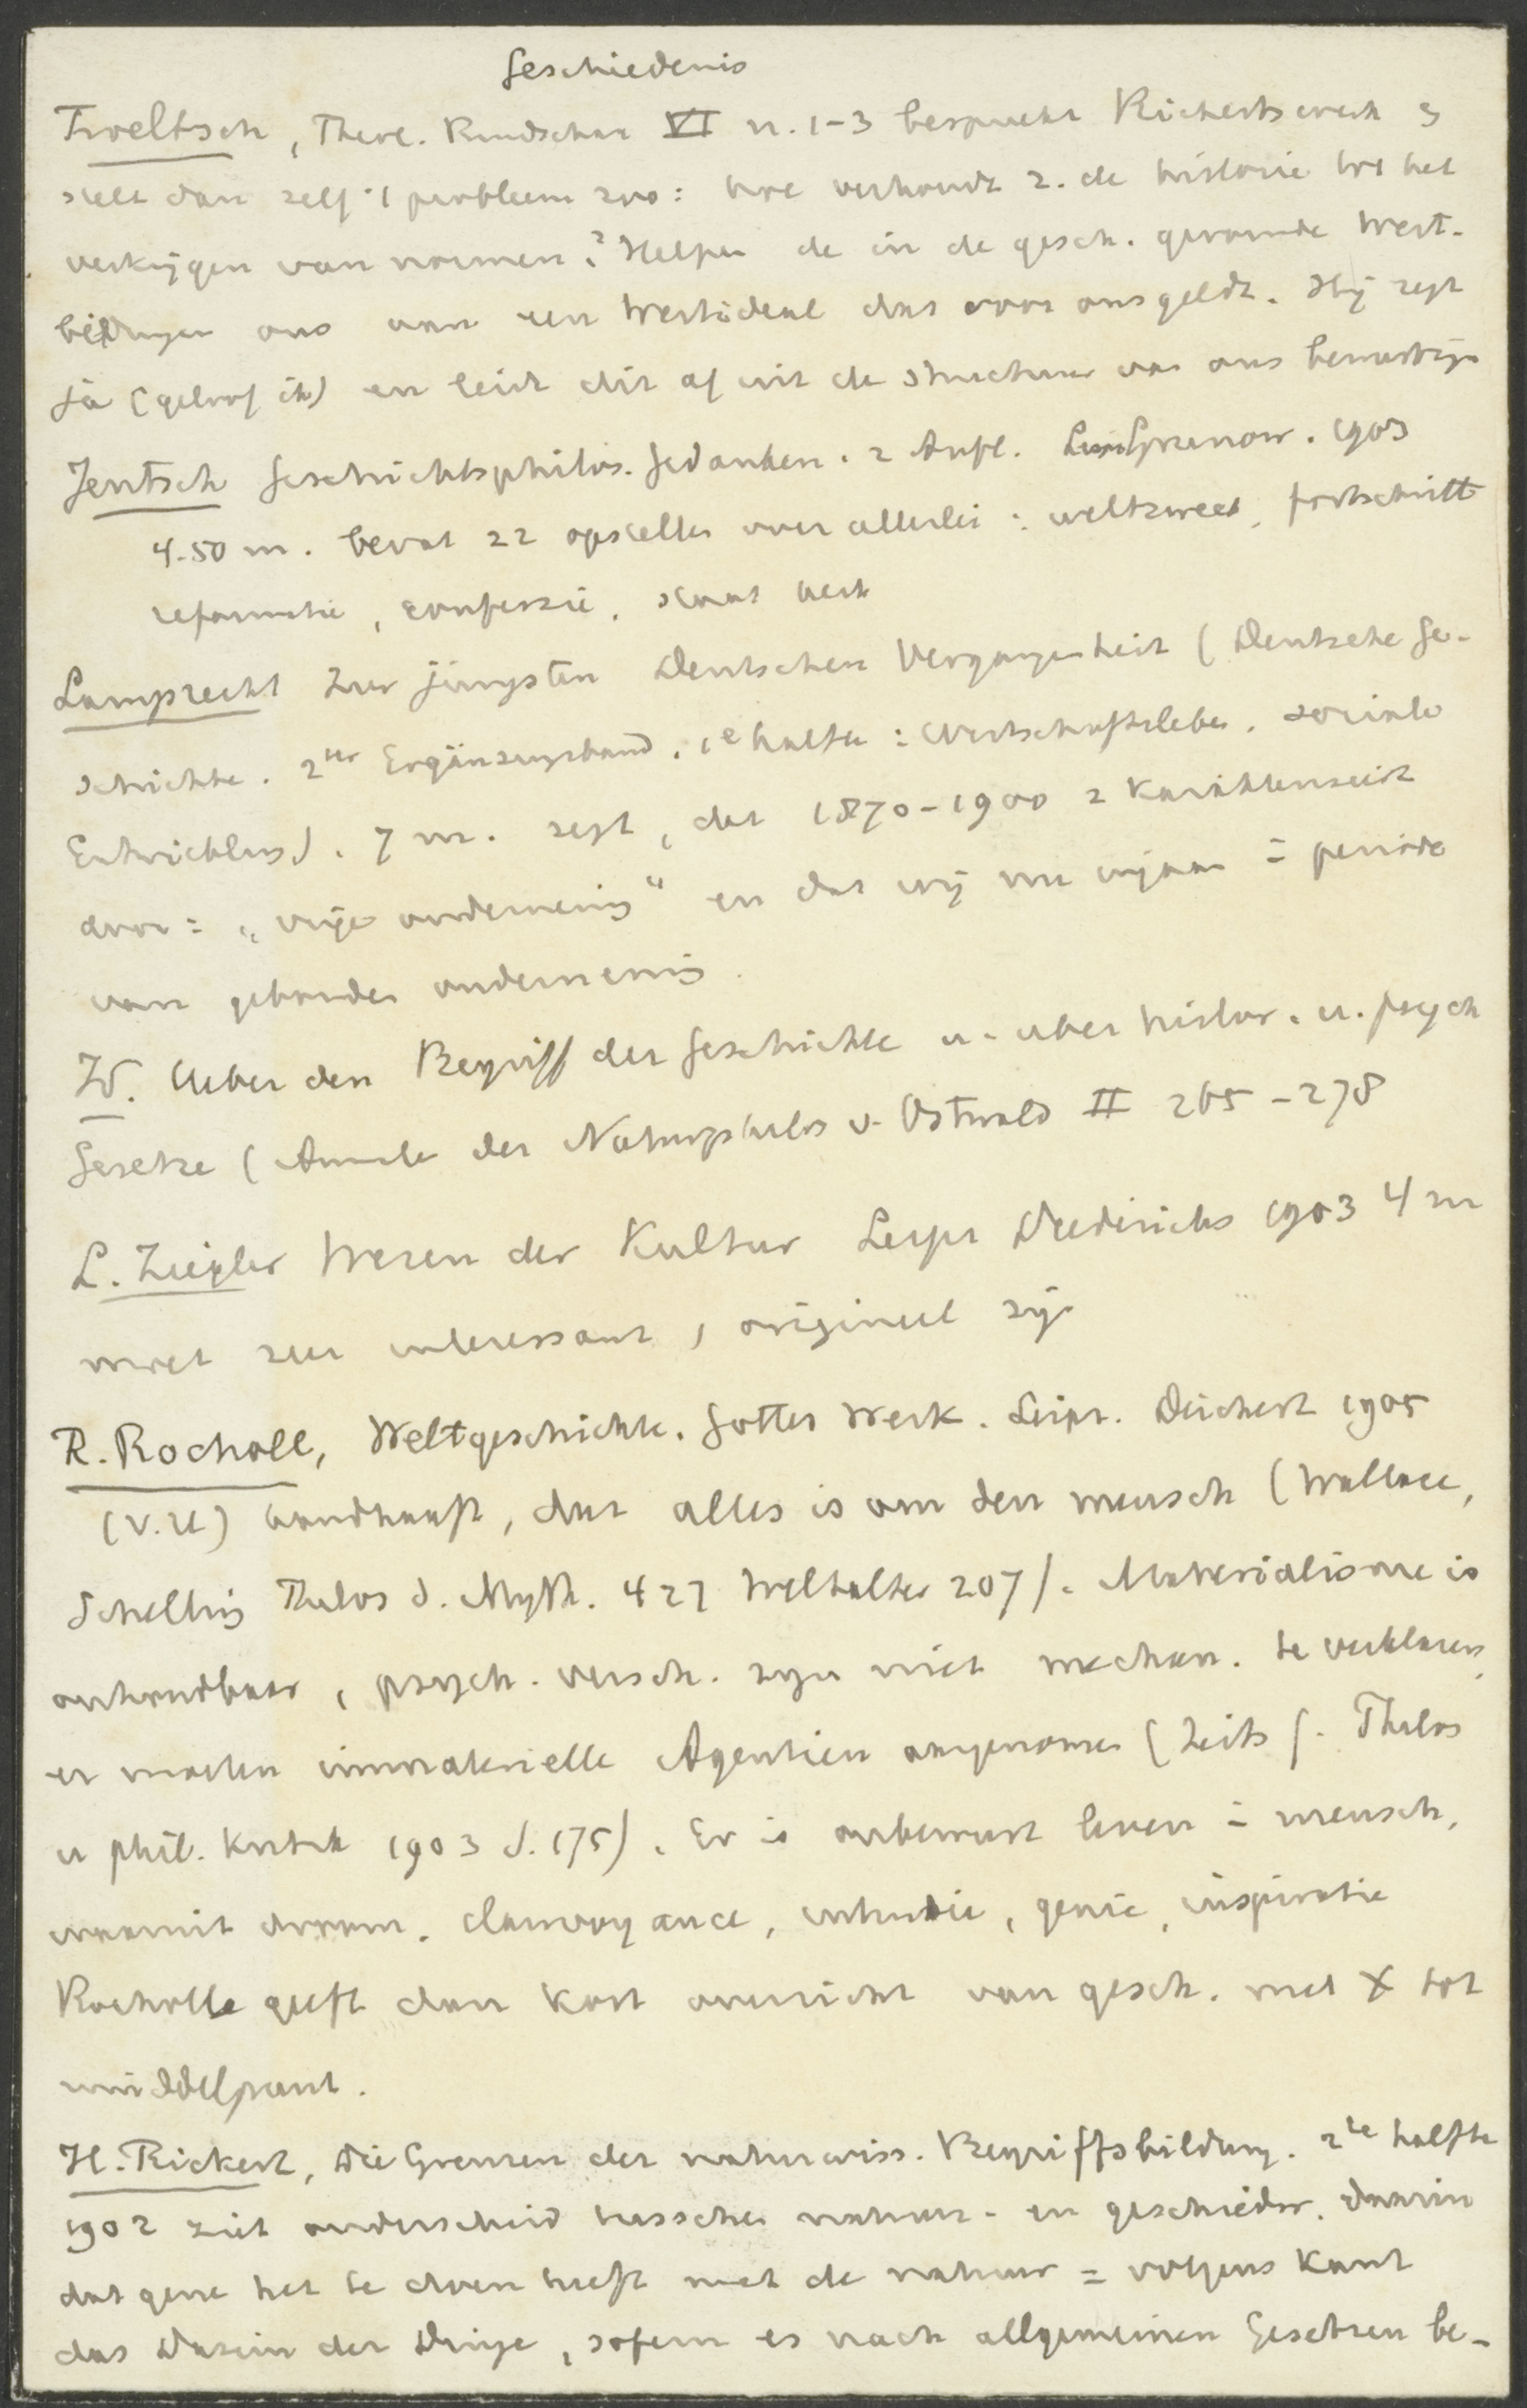 Geschiedenis
Troeltsch, Theol. Rundschau VI n. 1-3 bespreekt Rickerts werk &
stelt dan zelf 't probleem zoo: hoe verhoudt z. de historie tot het
verkrijgen van normen? Helpen de in de gesch. gevormde Wert-
bildungen ons aan een Wertideal dat voor ons geldt. Hij zegt
ja (geloof ik) en leidt dit af uit de structuur van ons bewustzijn
Jentsch Geschichtsphilos. Gedanken. 2 Aufl. Leipz Grunow. 1903
4.50 m. bevat 22 opstellen over allerlei: weltzweck, fortschritt
reformatie, confessie, staat kerk
Lamprecht Zur jüngsten Deutschen Vergangenheit (Deutsche Ge-
schichte. 2ter Ergänzungsband. 1e halfte: Wirtschaftsleben. sociale
Entwicklung). 7 m. zegt, dat 1870-1900 2 karakteriseert
door: „vrije onderneming" en dat wij nu ingaan i periode
van gebonden onderneming.
W. Ueber den Begriff der Geschichte u. uber histor. u. psych
Gesetze (Annalen der Naturphilos v. Ostwald II 265-278
L. Ziegler Wesen der Kultur Leipz Diederichs 1903 4 m
moet zeer interessant, origineel zijn
R. Rocholl, Weltgeschichte. Gottes Werk. Leipz. Deichert 1905
(V.U) handhaaft, dat alles is om den mensch (Wallace,
Schelling Philos d. Myth. 427 Weltalter 207). Materialisme is
onhoudbaar, psych. versch. zijn niet mechan. te verklaren,
er moeten immaterielle Agentien angenomen (Zeits f. Philos
u phil. Kritik 1903 S. 175). Er is onbewust leven i mensch,
waaruit droom, clairvoyance, intuitie, genie, inspiratie
Rocholl geeft dan kort overzicht van gesch. met X tot
middelpunt.
H. Rickert, Die Grenzen der naturwiss. Begriffsbildung. 2te halfte
1902 ziet onderscheid tusschen natuur- en geschiedw. daarin
dat gene het te doen heeft met de natuur = volgens Kant
das Dasein der Dinge, sofern es nach allgemeinen Gesetzen be-